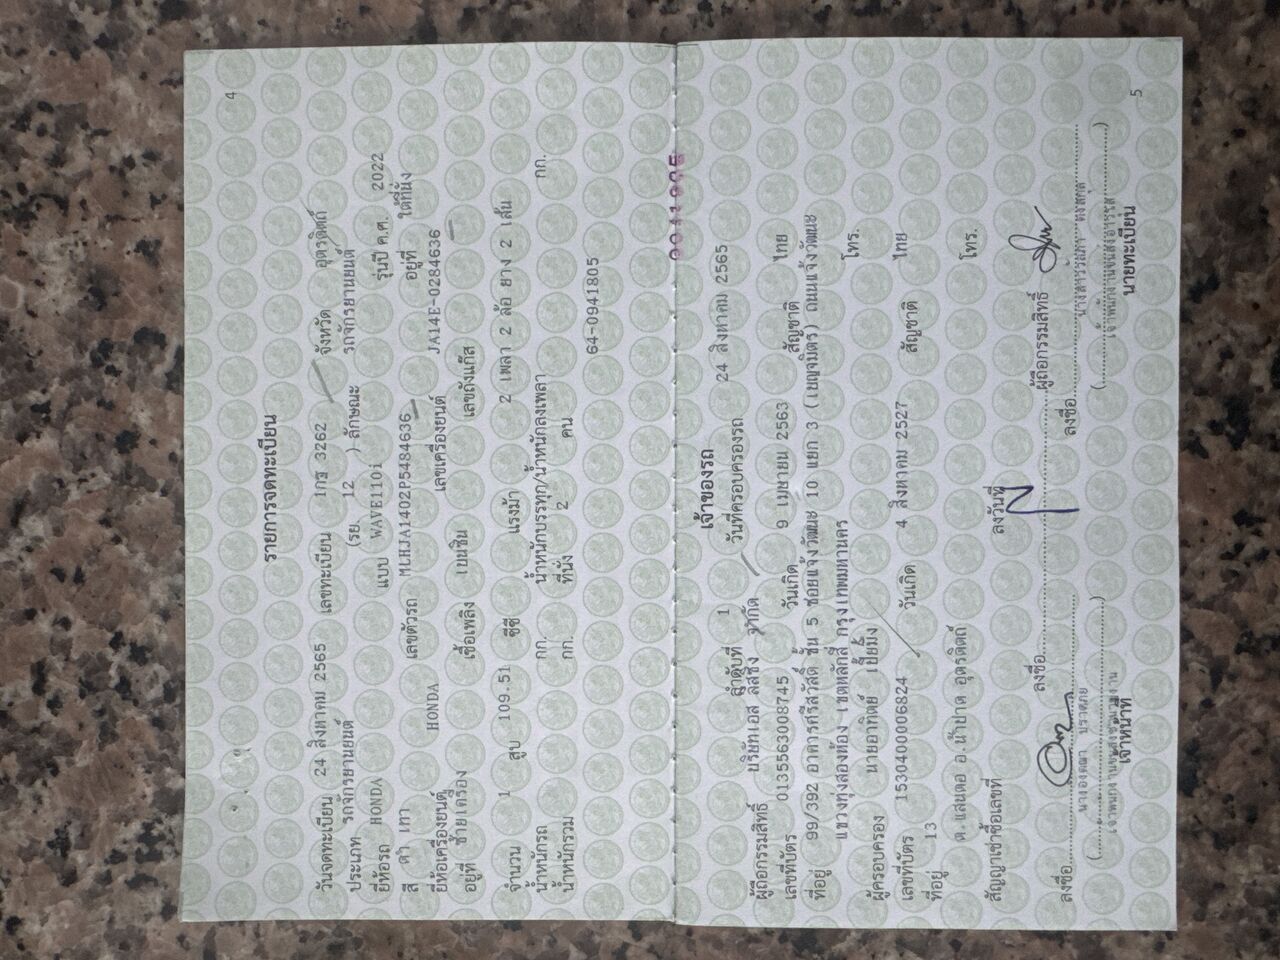 4
รายการจดทะเบียน
วันจดทะเบียน 24 สิงหาคม 2565 เลขทะเบียน 1กฐ 3262 จังหวัด อุตรดิตถ์
ประเภท รถจักรยานยนต์ (รย. 12 ) ลักษณะ รถจักรยานยนต์
ยี่ห้อรถ HONDA แบบ WAVE110i รุ่นปี ค.ศ. 2022
สี ดำ เทา เลขตัวรถ MLHJA1402P5484636 อยู่ที่ ใต้ที่นั่ง
ยี่ห้อเครื่องยนต์ HONDA เลขเครื่องยนต์ JA14E-0284636
อยู่ที่ ซ้ายเครื่อง เชื้อเพลิง เบนซิน เลขถังแก๊ส
จำนวน 1 สูบ 109.51 ซีซี แรงม้า 2 เพลา 2 ล้อ ยาง 2 เส้น
น้ำหนักรถ กก. น้ำหนักบรรทุก/น้ำหนักลงเพลา กก.
น้ำหนักรวม กก. ที่นั่ง 2 คน
64-0941805
เจ้าของรถ
ลำดับที่ 1 วันที่ครอบครองรถ 24 สิงหาคม 2565
ผู้ถือกรรมสิทธิ์ บริษัทเอส ลิสซิ่ง จำกัด
เลขที่บัตร 0135563008745 วันเกิด 9 เมษายน 2563 สัญชาติ ไทย
ที่อยู่ 99/392 อาคารศรีสวัสดิ์ ชั้น 5 ซอยแจ้งวัฒนะ 10 แยก 3 (เบญจมิตร) ถนนแจ้งวัฒนะ
แขวงทุ่งสองห้อง เขตหลักสี่ กรุงเทพมหานคร โทร.
ผู้ครอบครอง นายอาทิตย์
เลขที่บัตร 1530400006824 วันเกิด 4 สิงหาคม 2527 สัญชาติ ไทย
ที่อยู่ 13
ต. แสนตอ อ.น้ำปาด อุตรดิตถ์ โทร.
สัญญาเช่าซื้อเลขที่ ลงวันที่
ลงชื่อ ผู้ถือกรรมสิทธิ์
ลงชื่อ ลงชื่อ
เจ้าหน้าที่ นายทะเบียน
5